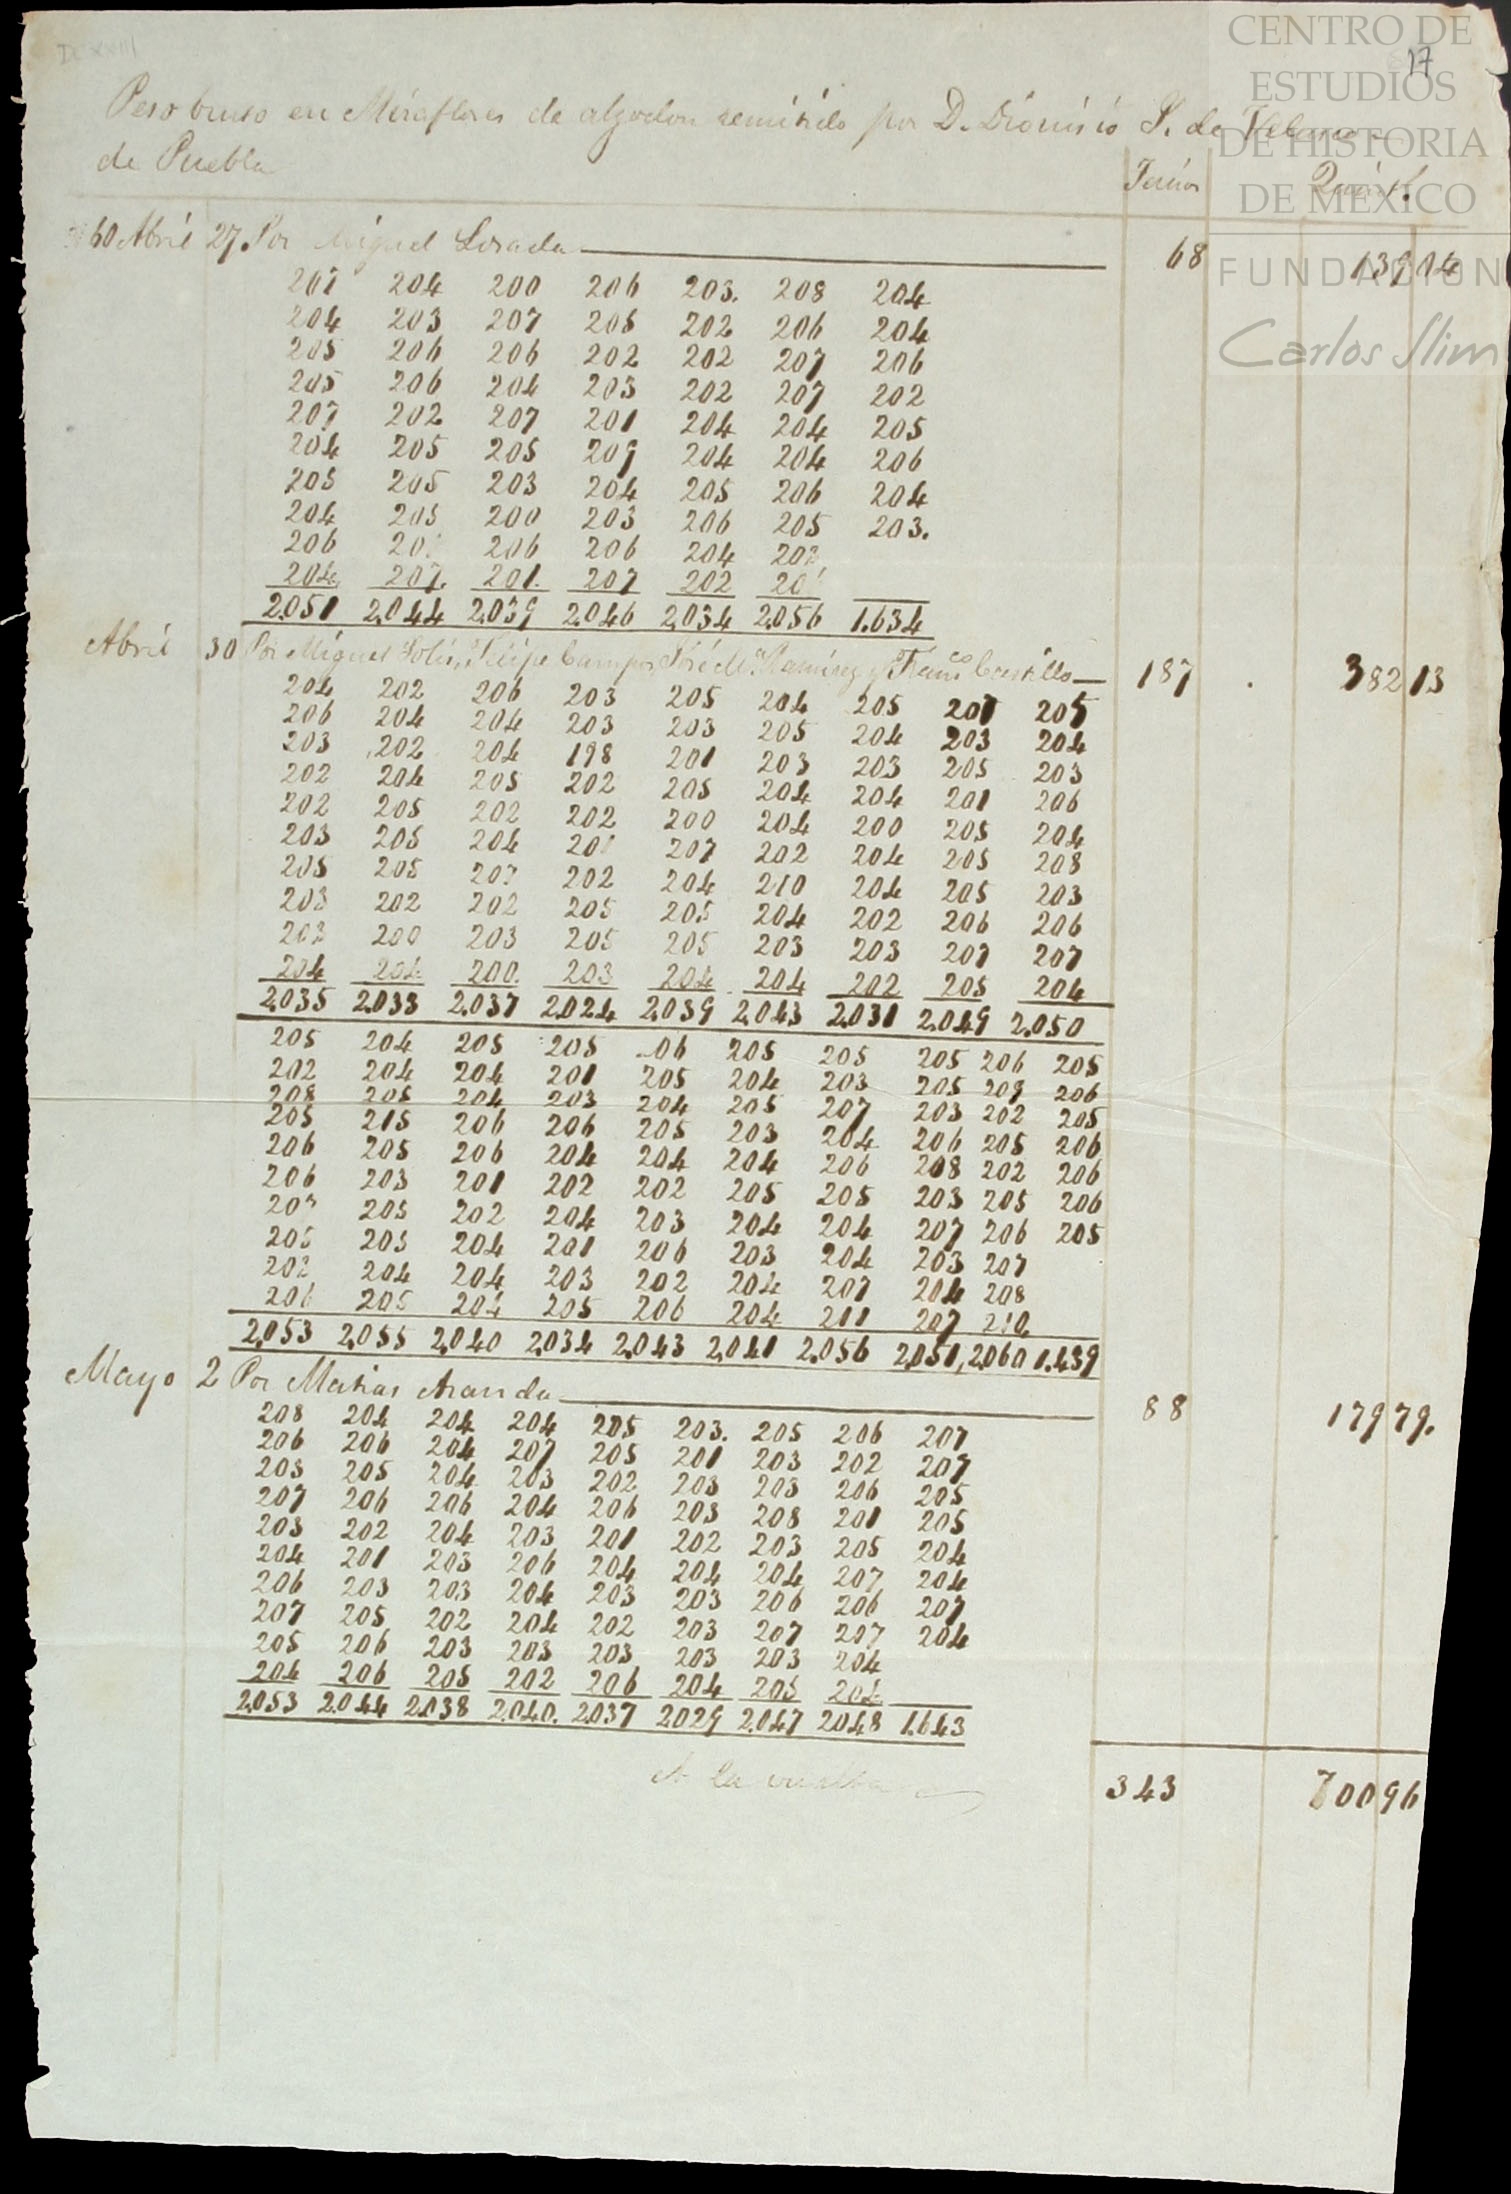 CENTRO DE
ESTUDIOS
DE HISTORIA
DE MÉXICO
FUNDACIÓN
Carlos Slim
DCXVIII
17
Peso bruto en Miraflores de algodon remitido por D. Dionisio J. de Velasco
de Puebla
Tercios Quint.
60 Abril 27. Por Miguel Losada 68 139 14
207 204 200 206 203. 208 204
204 203 207 205 202 206 204
205 206 206 202 202 207 206
205 206 204 203 202 207 202
207 202 207 201 204 204 205
204 205 205 209 204 204 206
205 205 203 204 205 206 204
204 205 200 203 206 205 203.
206 206 206 204
204 207. 201. 207 202
2,051 2,044 2,039 2,046 2,034 2,056 1.634
Abril 30 Por Miguel Solis, Felipe Campos, José Ma. Ramirez y Franco. Castillo 187 382 13
204 202 206 203 205 204 205 207 205
206 204 204 203 203 205 204 203 204
203 202 204 198 201 203 203 205 203
202 204 205 202 205 204 204 201 206
202 205 202 202 200 204 200 205 204
203 205 204 201 207 202 204 205 208
205 205 207 202 204 210 204 205 203
203 202 202 205 205 204 202 206 206
203 200 203 205 205 203 203 207 207
204 204 200. 203 204 204 202 205 204
2,035 2,033 2,037 2,024 2,039 2,043 2,031 2,049 2,050
205 204 205 205 06 205 205 205 206 205
202 204 204 201 205 204 203 205 209 206
208 205 204 203 204 205 207 203 202 205
205 215 206 206 205 203 204 206 205 206
206 205 206 204 204 204 206 208 202 206
206 203 201 202 202 205 205 203 205 206
207 205 202 204 203 204 204 207 206 205
205 205 204 201 206 203 204 203 207
202 204 204 203 202 204 207 204 208
206 205 204 205 206 204 211 207 210
2,053 2,055 2,040 2,034 2,043 2,041 2,056 2,051, 2,060 1.439
Mayo 2 Por Matias Aranda 88 179 79.
208 204 204 204 205 203. 205 206 207
206 206 204 207 205 201 203 202 207
203 205 204 203 202 203 203 206 205
207 206 206 204 206 203 208 201 205
203 202 204 203 201 202 203 205 204
204 201 203 206 204 204 204 207 204
206 203 203 204 203 203 206 206 207
207 205 202 204 202 203 207 207 204
205 206 203 203 203 203 203 204
204 206 205 202 206 204 205 204
2,053 2,044 2,038 2,040. 2,037 2,029 2,047 2,048 1.643
A la vuelta 343 700 96